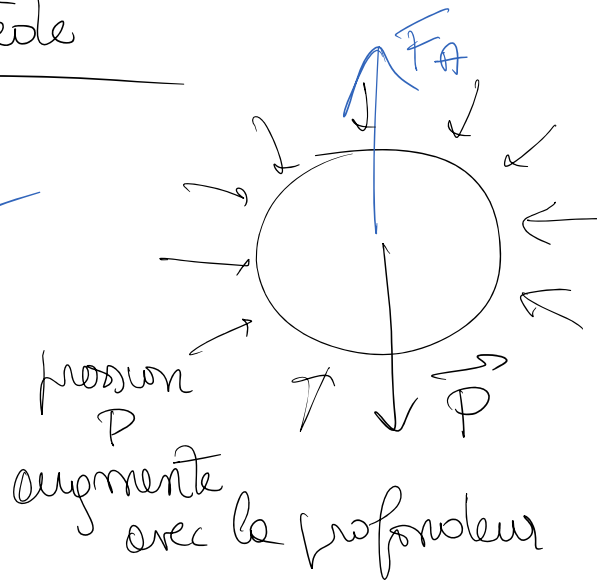 F_A
pression
P
P
augmente
avec la profondeur